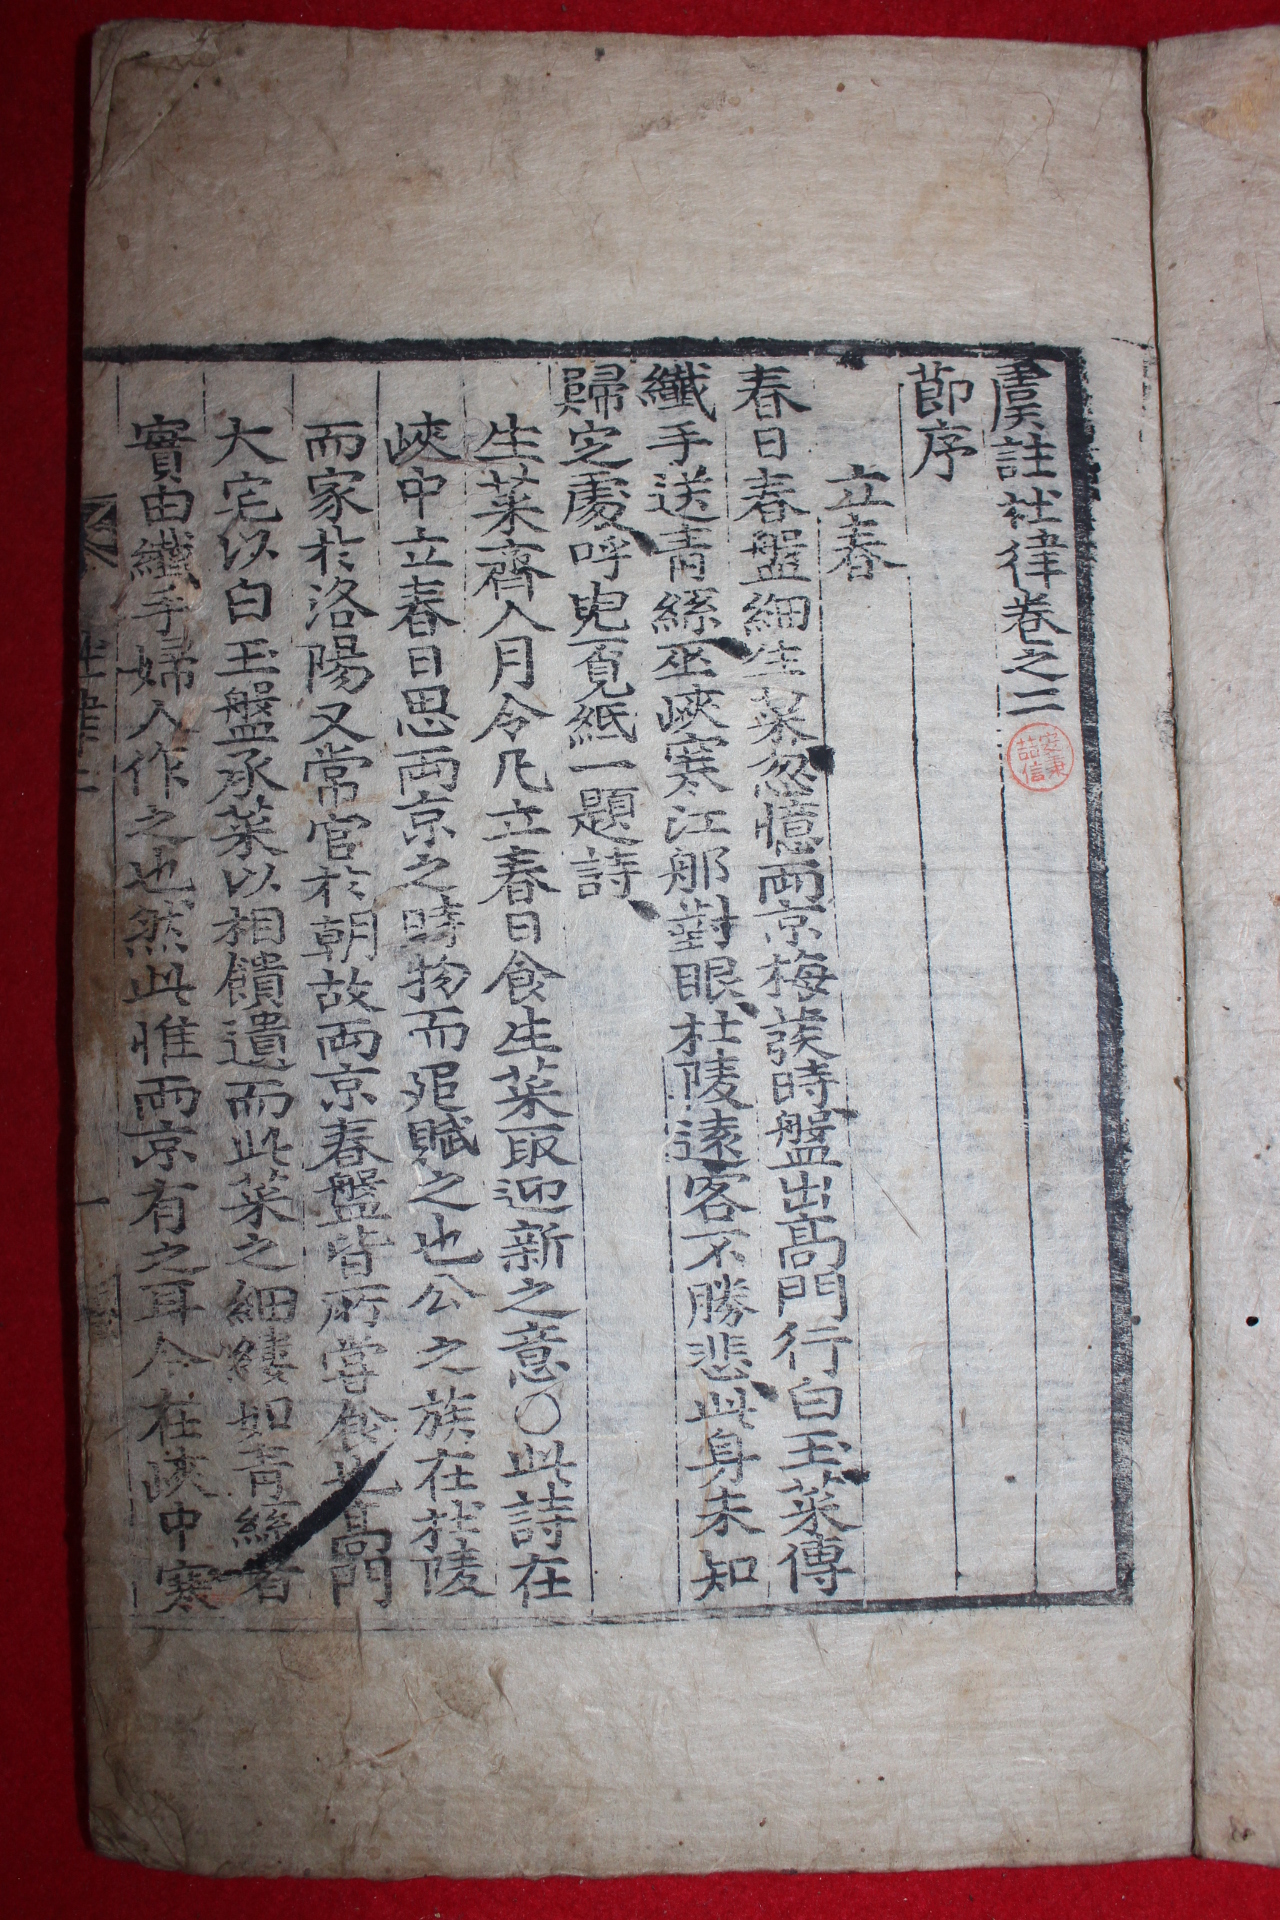 虞註杜律卷之二
節序
立春
春日春盤細生菜忽憶兩京梅發時盤出高門行白玉菜傳
纖手送青絲巫峽寒江那對眼杜陵遠客不勝悲此身未知
歸定處呼兒覓紙一題詩
生菜齊人月令凡立春日食生菜取迎新之意○此詩在
峽中立春日思两京之時物而追賦之也公之族在杜陵
而家於洛陽又常官於朝故两京春盤皆所嘗食也高門
大宅以白玉盤承菜以相饋遺而此菜之細縷如青絲者
實由纖手婦人作之也然此惟两京有之耳今在峽中寒
杜律二
一